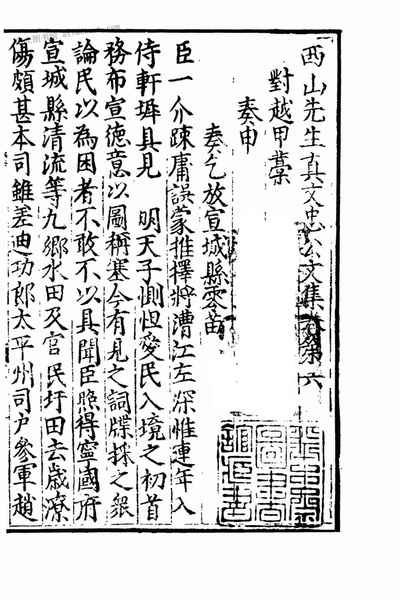 西山先生真文忠公文集卷第六
對越甲藁
奏申
奏乞放宣城縣零苗
臣一介踈庸誤蒙推擇將漕江左深惟連年入
侍軒墀具見　明天子惻怛愛民入境之初首
務布宣德意以圖稱塞今有見之詞牒採之衆
論民以為困者不敢不以具聞臣照得寧國府
宣城縣清流等九鄉水田及官民圩田去歲潦
傷頗甚本司雖差迪功郎太平州司户參軍趙